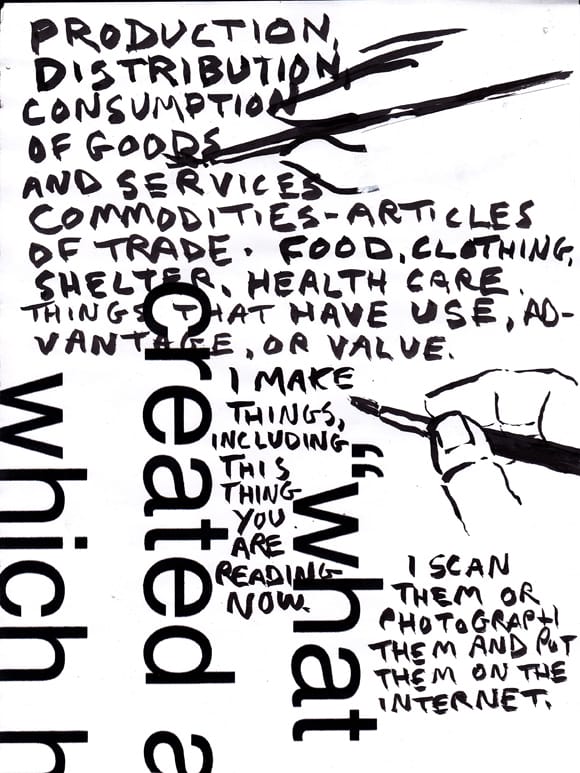 PRODUCTION,
DISTRIBUTION,
CONSUMPTION
OF GOODS
AND SERVICES
COMMODITIES-ARTICLES
OF TRADE. FOOD, CLOTHING,
SHELTER, HEALTH CARE.
THINGS THAT HAVE USE, AD-
VANTAGE, OR VALUE.
I MAKE
THINGS,
INCLUDING
THIS
THING
YOU
ARE
READING
NOW.
I SCAN
THEM OR
PHOTOGRAPH
THEM AND PUT
THEM ON THE
INTERNET.
"what
created a
which h